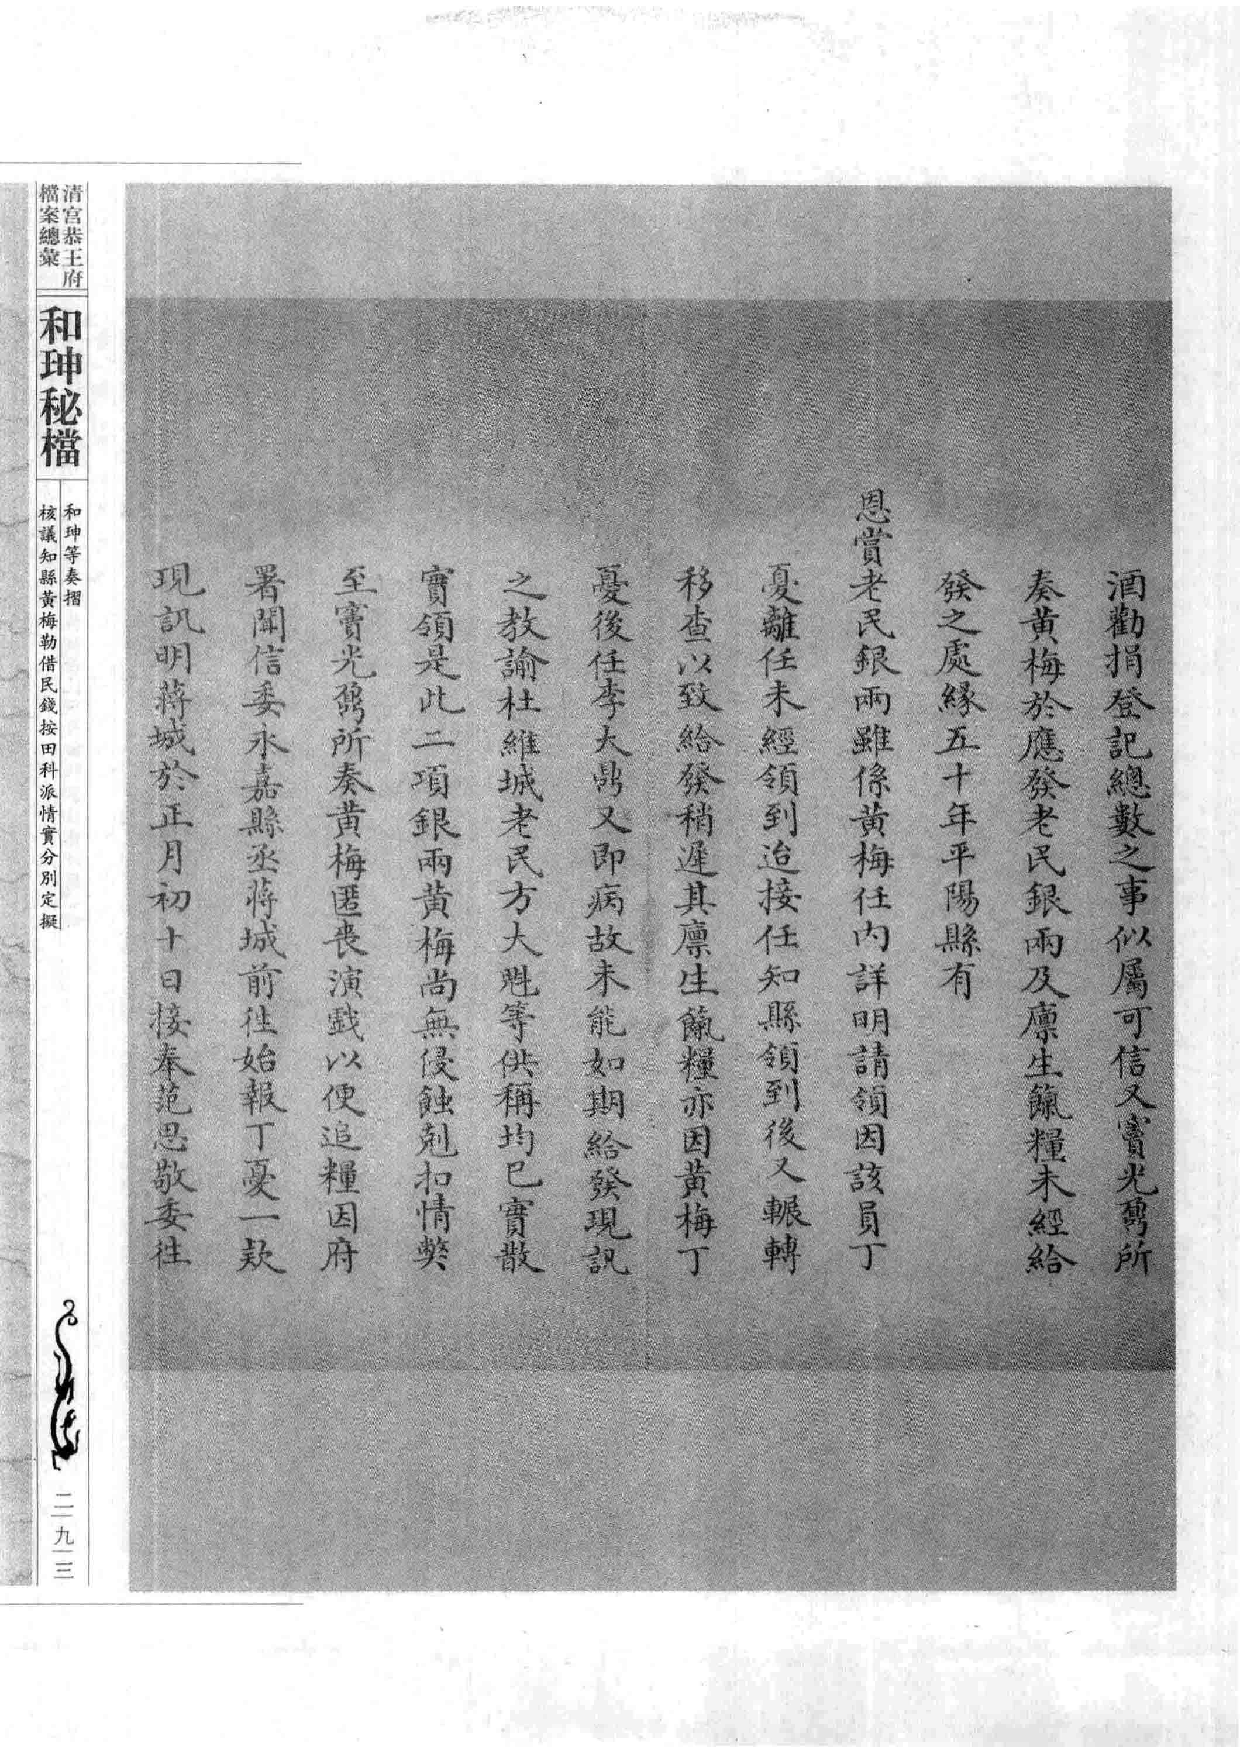 酒勸捐登記總數之事似屬可信又竇光鼐所
奏黃梅於應發老民銀兩及廩生餼糧未經給
發之處緣五十年平陽縣有
恩賞老民銀兩雖係黃梅任內詳明請領因該員丁
憂離任未經領到迨接任知縣領到後又輾轉
移查以致給發稍遲其廩生餼糧亦因黃梅丁
憂後任李大鼎又即病故未能如期給發現訊
之教諭杜維城老民方大魁等供稱均已實散
實領是此二項銀兩黃梅尚無侵蝕剋扣情獘
至竇光鼐所奏黃梅匿喪演戲以便追糧因府
署聞信委永嘉縣丞蔣城前往始報丁憂一欵
現訊明蔣城於正月初十日接奉范思敬委往
清宮恭王府
檔案總彙
和珅秘檔
和珅等奏摺
核議知縣黃梅勒借民錢按田科派情實分別定擬
二九三